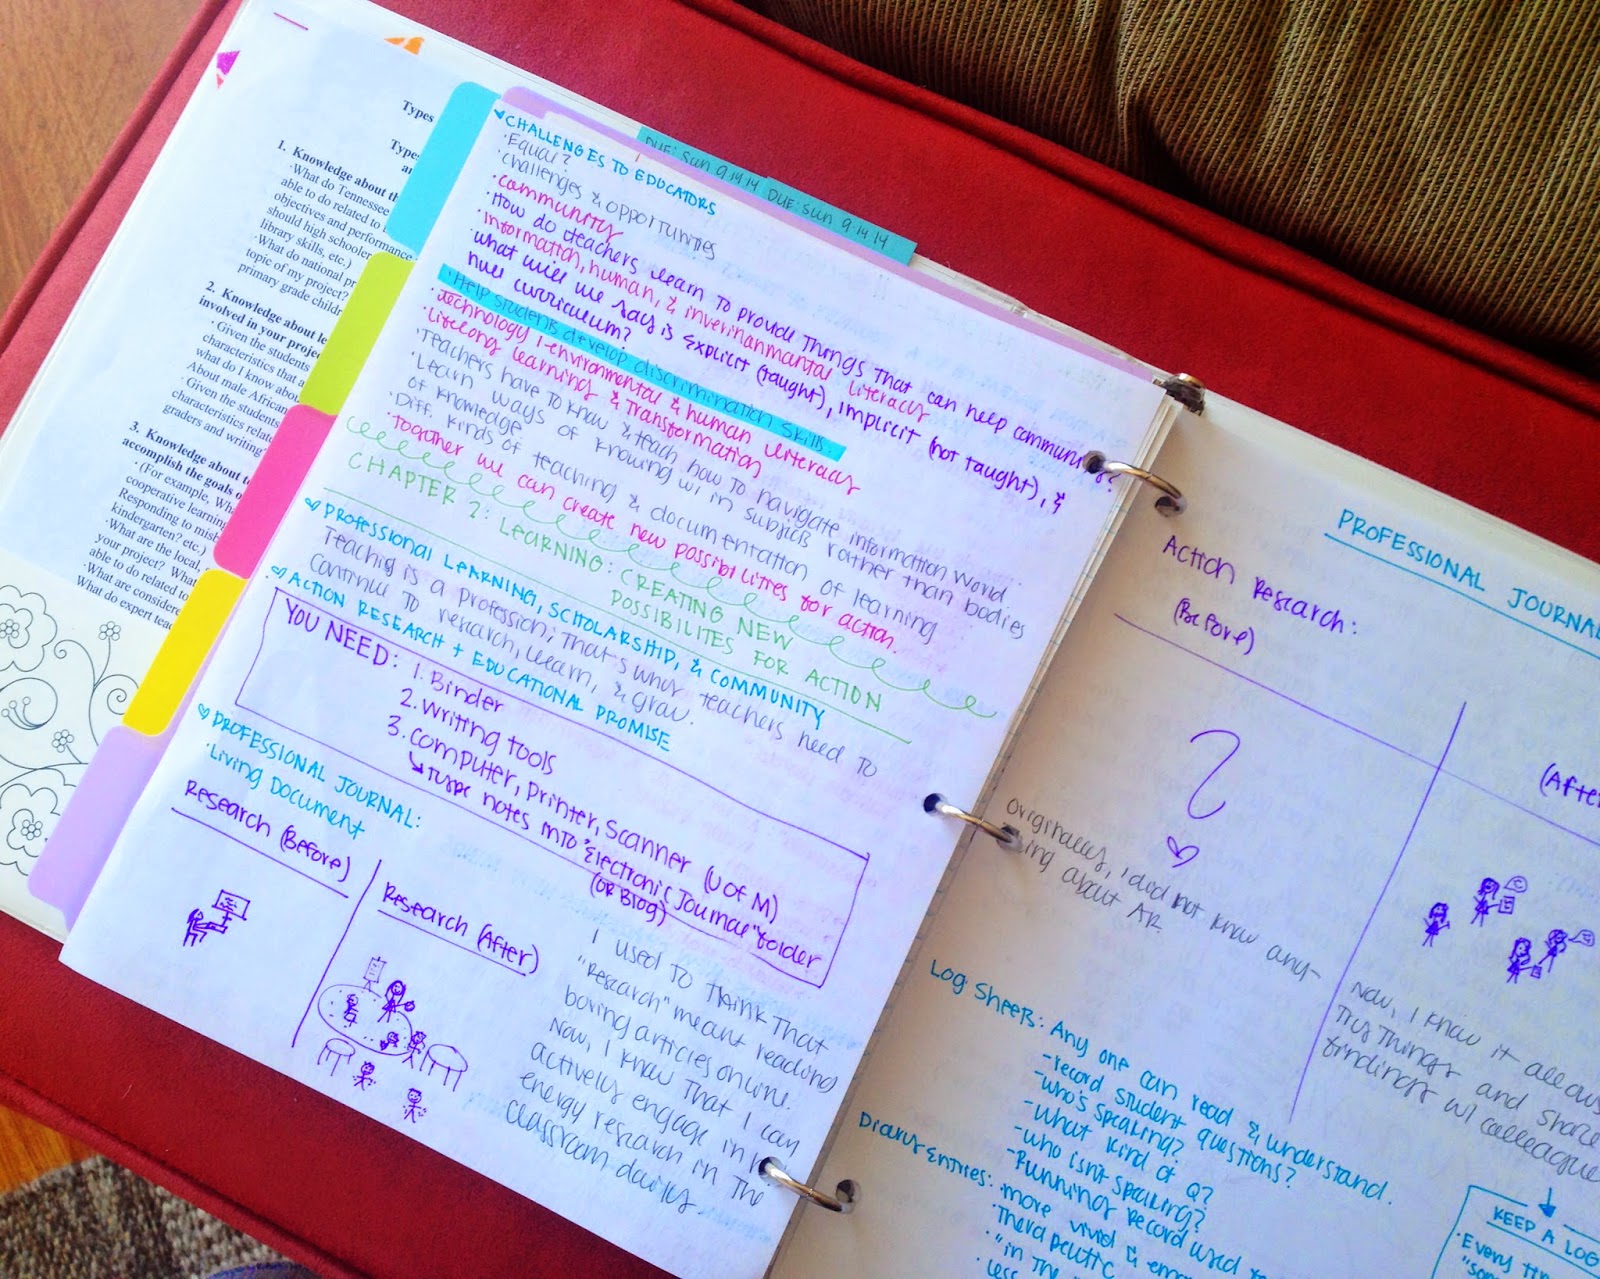 Types
Types
a
1. Knowledge about th
·What do Tennessee
able to do related to
objectives and performance
should high schooler
library skills, etc.)
·What do national p
topic of my project?
primary grade childr
2. Knowledge about le
involved in your projec
·Given the students
characteristics that a
what do I know abou
About male African
·Given the students
characteristics relate
graders and writing?
3. Knowledge about t
accomplish the goals o
·(For example, Wha
cooperative learning
Responding to mish
kindergarten? etc.)
·What are the local, s
your project? What
able to do related to
·What are considere
What do expert teac
DUE: Sun 9.14.14
DUE: Sun 9.14.14
CHALLENGES TO EDUCATORS
·Equal?
·challenges & opportunities
·community
·How do teachers learn to provide things that can help community?
·information, human, & inverinanmantal literacy
·what will we say is explicit (taught), implicit (not taught), &
null curriculum?
·Help students develop discrimination skills.
·technology, environmental & human literacy
·lifelong learning & transformation
·Teachers have to know & teach how to navigate information world.
·Learn ways of knowing w/in subjects rather than bodies
of knowledge
·Diff. kinds of teaching & documentation of learning
·together we can create new possibilities for action.
CHAPTER 2: LEARNING: CREATING NEW
POSSIBILITES FOR ACTION
PROFESSIONAL LEARNING, SCHOLARSHIP, & COMMUNITY
Teaching is a profession; that's why teachers need to
continue to research, learn, & grow.
ACTION RESEARCH + EDUCATIONAL PROMISE
YOU NEED: 1. Binder
2. Writing tools
3. computer, printer, scanner (U of M)
↳ type notes into "Electronic Journal" folder
(OR Blog)
PROFESSIONAL JOURNAL:
·Living Document
Research (Before)
Research (After)
I used to think that
"research" meant reading
boring articles online.
Now, I know that I can
actively engage in
energy research in the
classroom daily.
PROFESSIONAL JOURNAL
Action Research:
(Before)
(After
?
originally, I did not know any-
thing about AR.
Now, I know it allows
try things and share
findings w/ colleague
Log Sheets: Any one can read & understand.
-record student questions?
-who's speaking?
-What kind of Q?
-who isn't speaking?
-Running record used
Diary Entries: ·more vivid &
·Therapeutic
·"in the
·less
KEEP A LOG
·Every